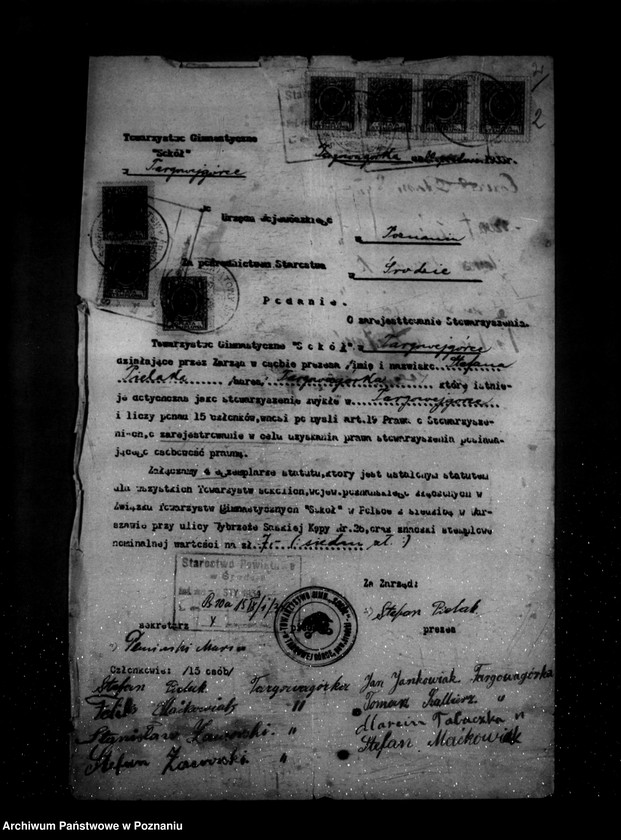 2
2
Towarzystwo Gimnastyczne
"Sokół"
z Targowejgórce
Targowagórka 1933r.
Urzędu Wojewódzkiego
w Poznaniu
Za pośrednictwem Starostwa
w Środzie
Podanie.
O zarejestrowanie Stowarzyszenia.
Towarzystwo Gimnastyczne "Sokół" z Targowejgórce
działające przez Zarząd w osobie prezesa /imię i nazwisko Stefana
Pielaka /adres/ Targowagórka które istnie-
je dotychczas jako stowarzyszenie zwykłe w Targowejgórce
i liczy ponad 15 członków, wnosi po myśli art.19 Prawa o Stowarzysze-
niach, o zarejestrowanie w celu uzyskania prawa stowarzyszenia posiada-
jącego osobowość prawną.
Załączamy 4 egzemplarze statutu, który jest ustalonym statutem
dla wszystkich Towarzystw sokolich, wojew. poznańskiego złączonych w
Związku Towarzystw Gimnastycznych "Sokół" w Polsce z siedzibą w War-
szawie przy ulicy Wybrzeże Saskiej Kępy Nr.26, oraz znaczki stemplowe
nominalnej wartości na zł. 7.- (siedem zł.)
Starostwo Powiatowe
w Środzie
STY 1934
Za Zarząd:
Stefan Pielak
sekretarz
prezes
Maria
Członkowie: /15 osób/
Stefan Pielak Targowagórka
Jan Jankowiak Targowagórka
Feliks Maćkowiak "
Tomasz "
Stanisław "
Marcin Tabaczka "
Stefan "
Stefan Maćkowiak
Archiwum Państwowe w Poznaniu